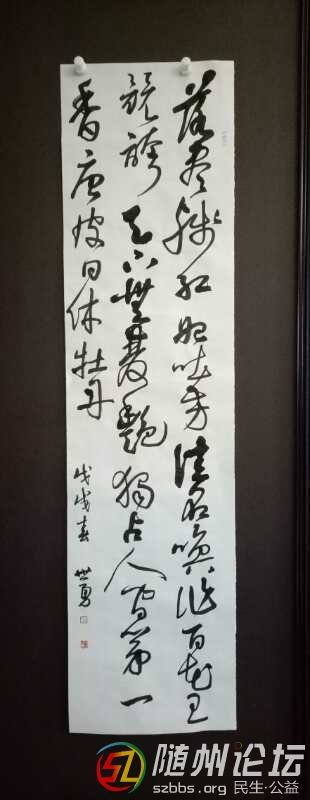 落尽残红始吐芳佳名唤作百花王
競誇天下無雙艷獨占人间第一
香唐皮日休牡丹
戊戌春 世勇
随州论坛
szbbs.org 民生·公益